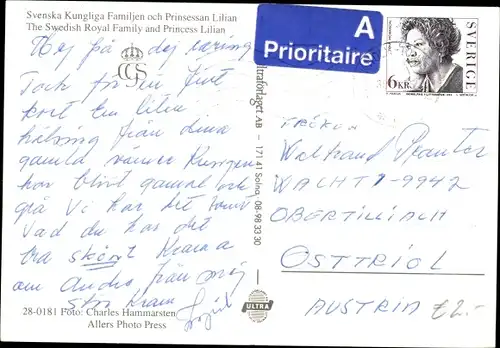 Svenska Kungliga Familjen och Prinsessan Lilian
The Swedish Royal Family and Princess Lilian
A
Prioritaire
SVERIGE
6 KR
Hej på dej
Tack för fint
kort En liten
hälsning från dina
gamla vänner Kungen
har blivit gammal och
grå Vi har det
Vad du har det
bra skönt Krama
om Andra från mig
Stor Kram
Ultraförlaget AB – 171 41 Solna. 08-98 33 30
Waltraud
WACHT 1-9942
OBERTILLIACH
OSTTIROL
AUSTRIA £2.-
ULTRA
28-0181 Foto: Charles Hammarsten
Allers Photo Press